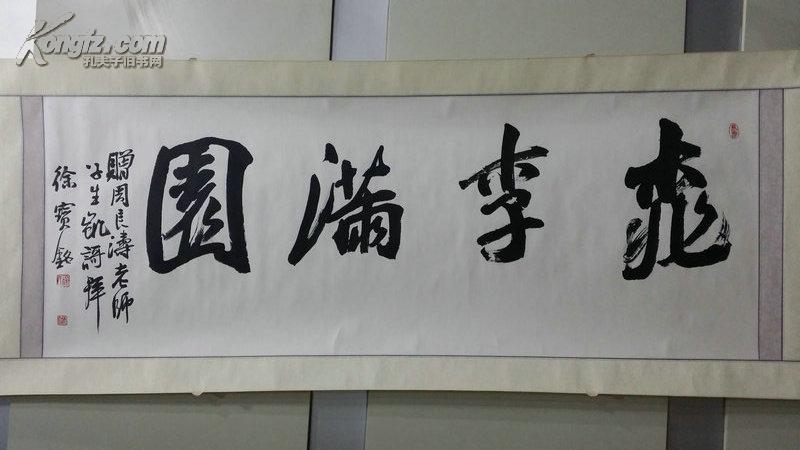 桃李满園
贈周良濤老师
学生凱謌拜
徐寶銘
Kongfz.com
孔夫子旧书网